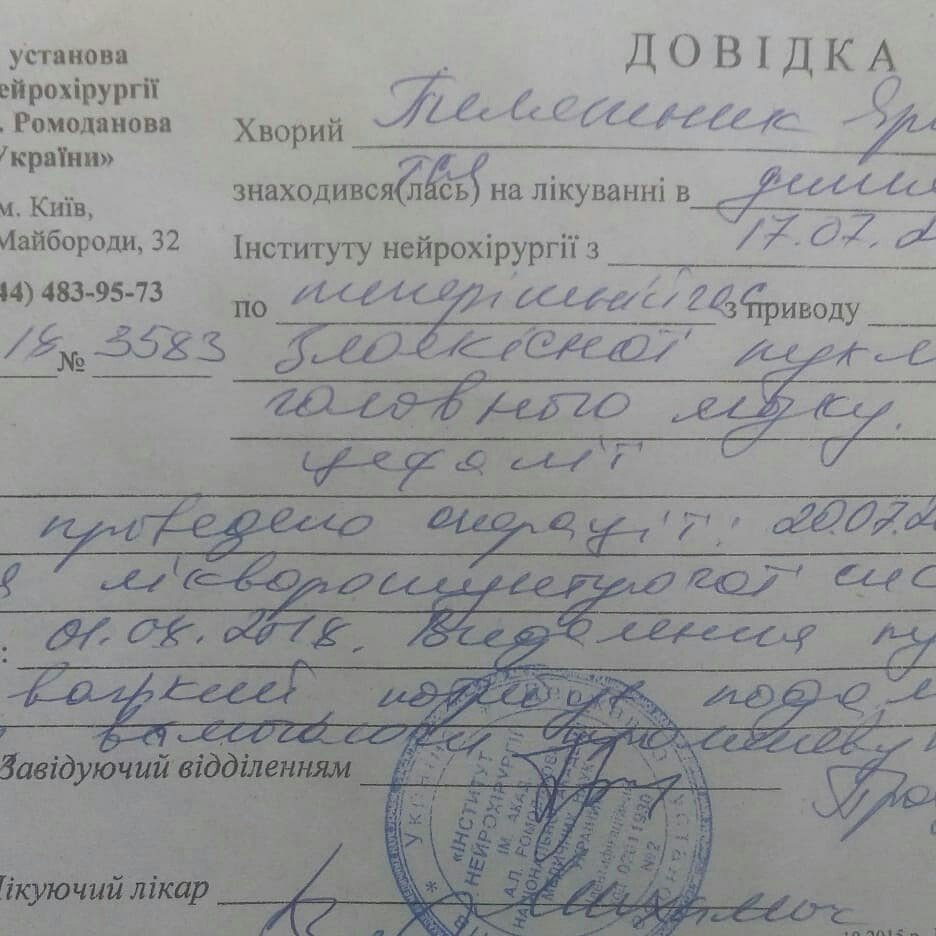 ДОВІДКА
установа
ейрохірургії
. Ромоданова
України»
м. Київ,
Майбороди, 32
44) 483-95-73
18 № 3583
Хворий
знаходився(лась) на лікуванні в
Інституту нейрохірургії з 17.07.2
по теперішній час з приводу
Злоякісної пухл
головного мозку.
цефалії
проведено операції: 20.07.2
лікворошунтуючої сис
: 01.08.2018. Видалення пу
важкий, потребує
променеву
Завідуючий відділенням
Лікуючий лікар
Україна
«ІНСТИТУТ
НЕЙРОХІРУРГІЇ
ІМ. АКАД.
А.П. РОМОДАНОВА
НАЦІОНАЛЬНОЇ АКАДЕМІЇ
МЕДИЧНИХ НАУК
УКРАЇНИ»
№2